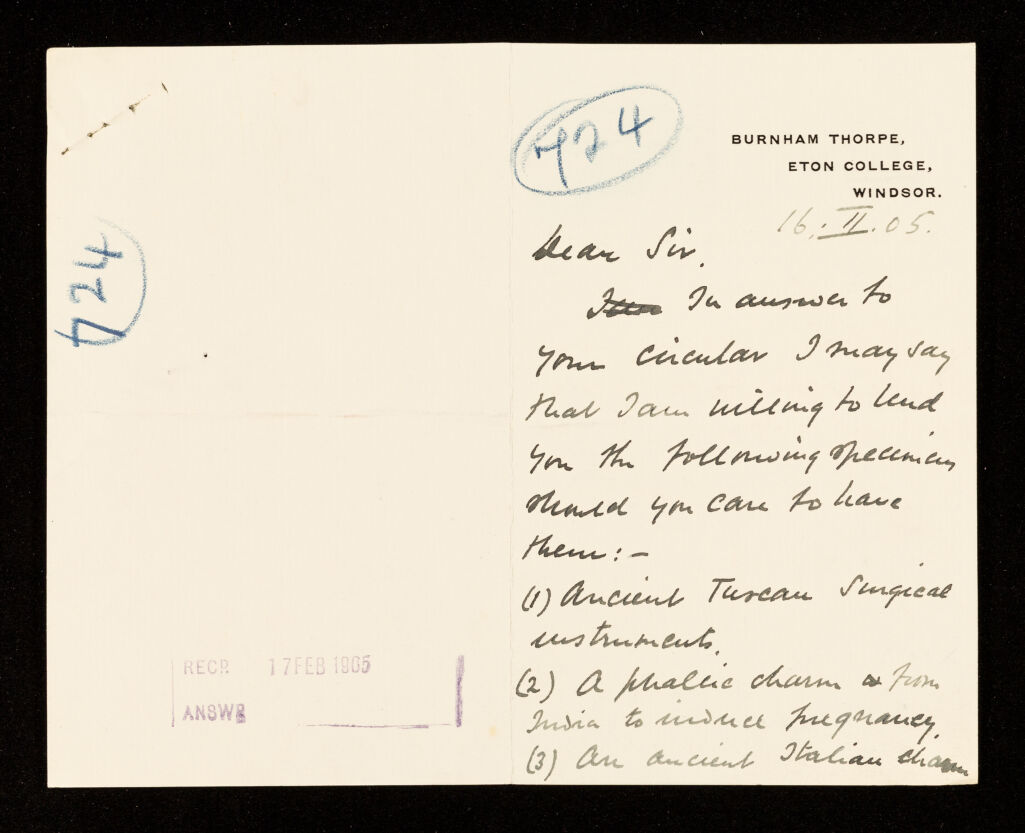 724
RECD. 17 FEB 1905
ANSWD
724
BURNHAM THORPE,
ETON COLLEGE,
WINDSOR.
16.II.05.
Dear Sir,
In answer to
your circular I may say
that I am willing to lend
you the following specimens
should you care to have
them:-
(1) Ancient Tuscan Surgical
instruments.
(2) A phallic charm from
India to induce pregnancy.
(3) An ancient Italian charm